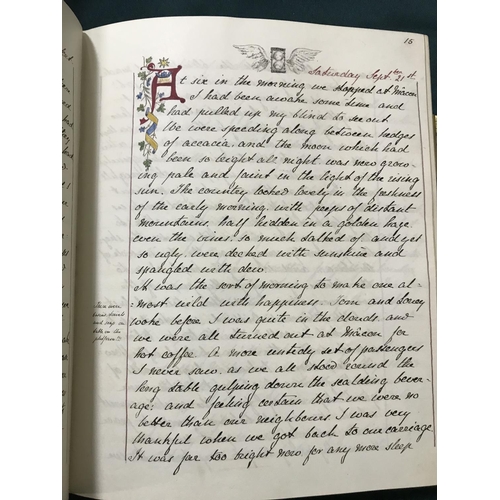 15
Saturday Septber 21st.
At six in the morning we stopped at Mâcon
I had been awake some time and
had pulled up my blind to see out
We were speeding along between hedges
of accacia, and the moon which had
been so bright all night was now grow-
ing pale and faint in the light of the rising
sun. The country looked lovely in the freshness
of the early morning, with peeps of distant
mountains, half hidden in a golden haze,
even the vines, so much talked of and yet
so ugly, were decked with sunshine and
spangled with dew.
It was the sort of morning to make one al-
most wild with happiness. Tom and
woke before I was quite in the clouds and
we were all turned out at Mâcon for
hot coffee. A more untidy set of passengers
I never saw, as we all stood round the
long table gulping down the scalding bever-
age; and feeling certain that we were no
better than our neighbours I was very
thankful when we got back to our carriage
It was far too bright now for any more sleep